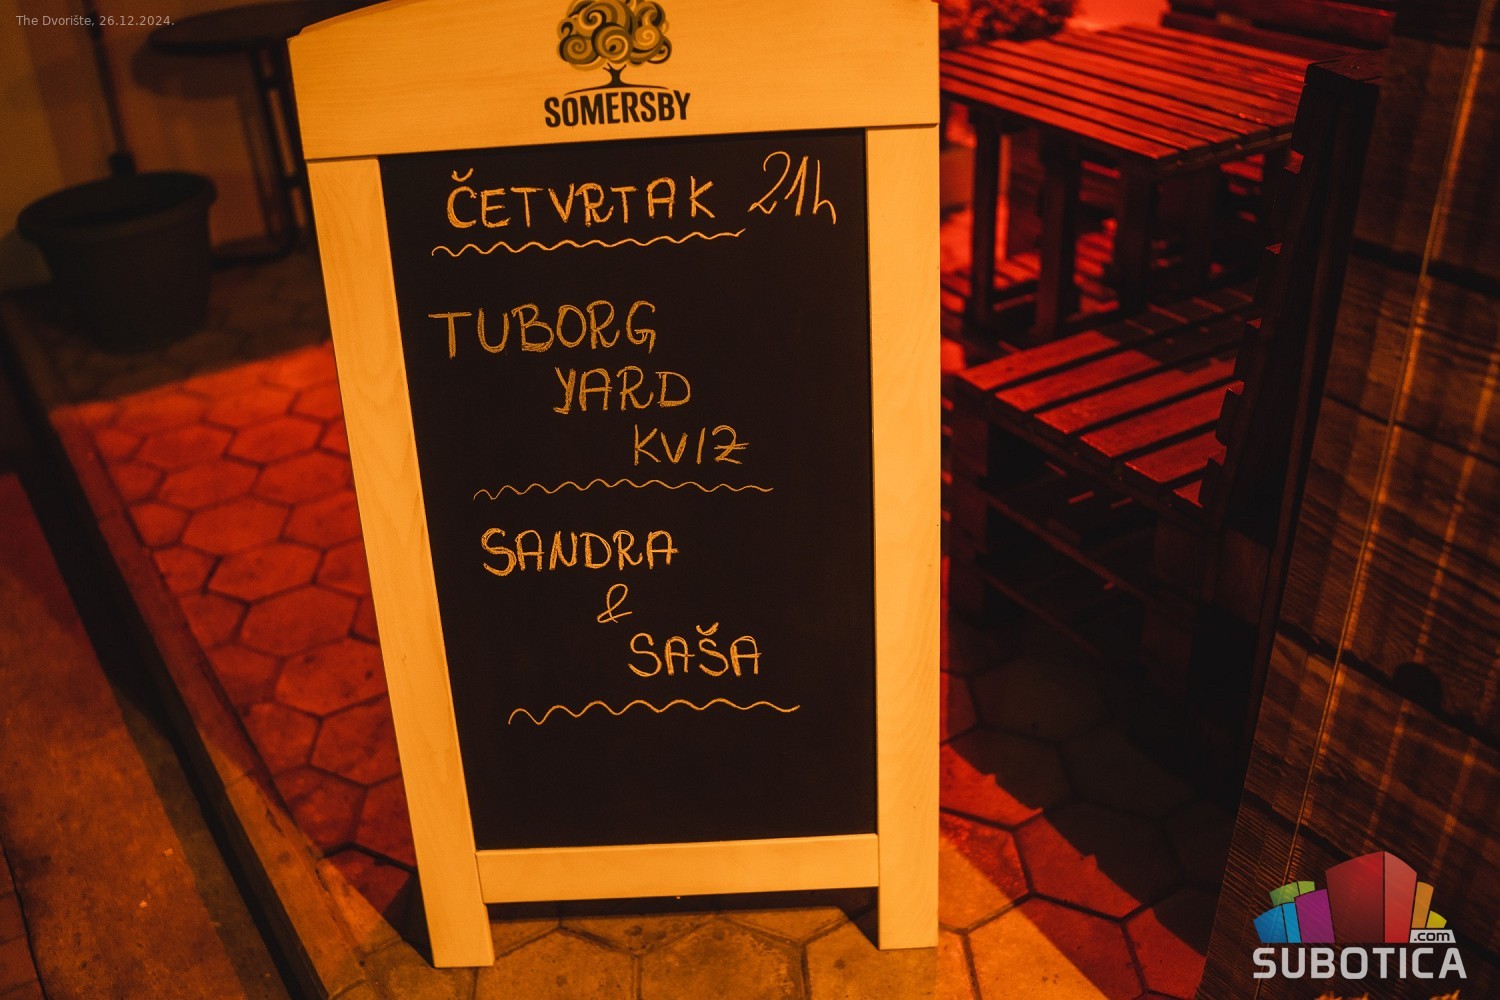 The Dvorište, 26.12.2024.
SOMERSBY
ČETVRTAK 21h
TUBORG
YARD
KVIZ
SANDRA
&
SAŠA
.com
SUBOTICA